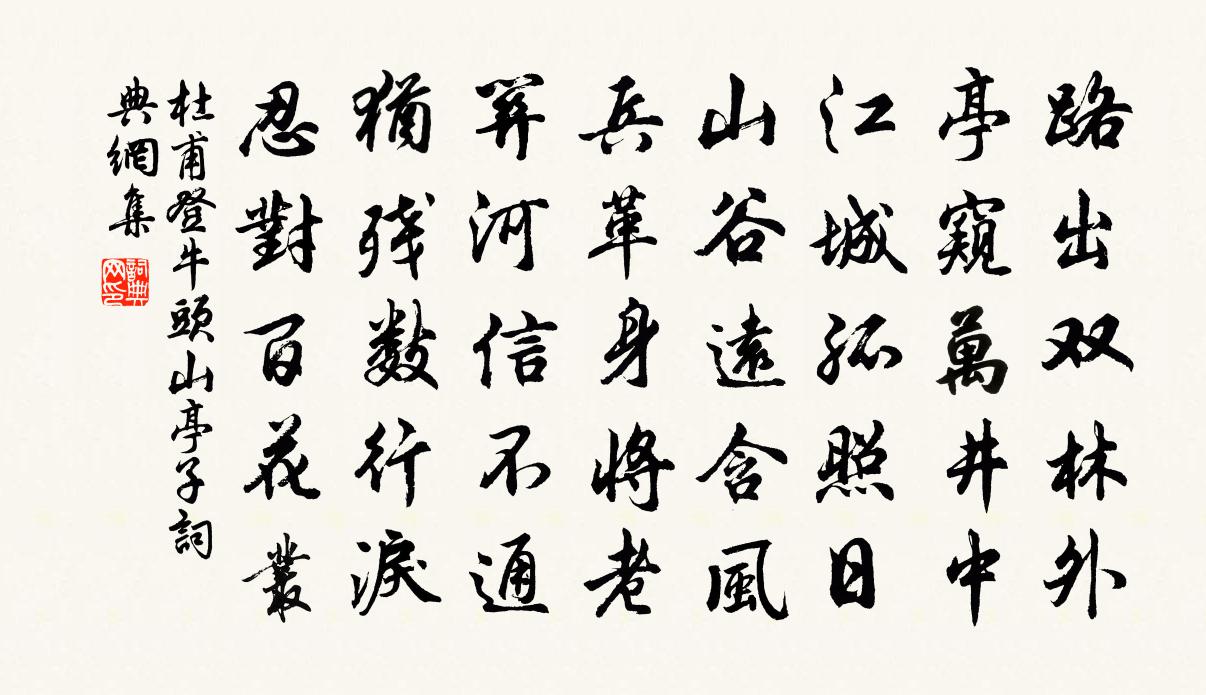 路出双林外
亭窺萬井中
江城孤照日
山谷遠含風
兵革身將老
關河信不通
猶残數行淚
忍對百花叢
杜甫登牛頭山亭子詞
典網集
詞典
网印